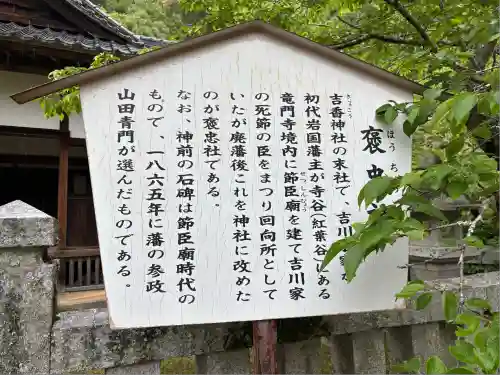 褒忠
吉香神社の末社で、吉川
初代岩国藩主が寺谷(紅葉谷)にある
竜門寺境内に節臣廟を建て吉川家
の死節の臣をまつり回向所として
いたが廃藩後これを神社に改めた
のが褒忠社である。
なお、神前の石碑は節臣廟時代の
もので、一八六五年に藩の参政
山田青門が選んだものである。